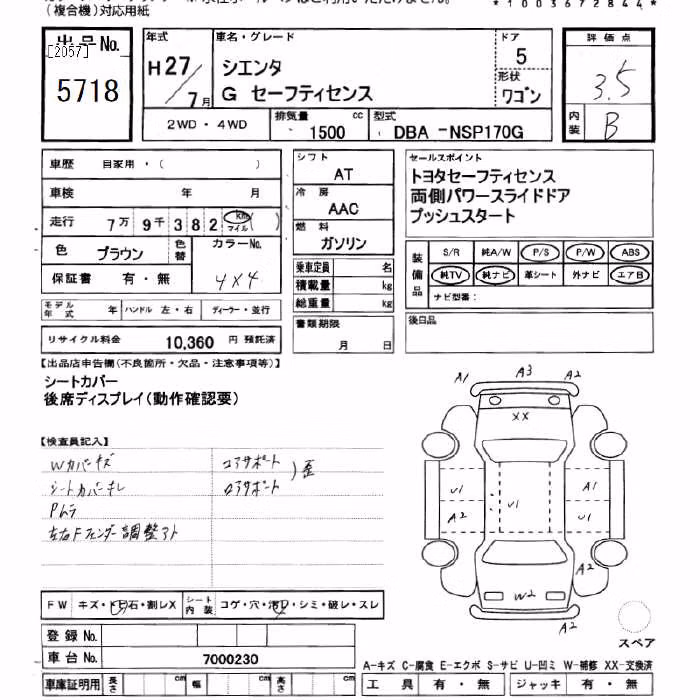 *1003672844*
(複合機)対応用紙
出品No.
[2057]
5718
年式
H27/7月
車名・グレード
シエンタ
G セーフティセンス
ドア
5
形状
ワゴン
評価点
3.5
内装
B
2WD・4WD
排気量 1500 cc
型式 DBA -NSP170G
車歴 自家用・( )
車検 年 月
走行 7万9千382 km マイル ( )
色 ブラウン 色替 カラーNo. 4X4
保証書 有・無
モデル年式 年 ハンドル 左・右 ディーラー・並行
リサイクル料金 10,360 円 預託済
シフト
AT
冷房
AAC
燃料
ガソリン
乗車定員 名
積載量 kg
総重量 kg
書類期限
月 日
セールスポイント
トヨタセーフティセンス
両側パワースライドドア
プッシュスタート
装備品
S/R 純A/W P/S P/W ABS
純TV 純ナビ 革シート 外ナビ エアB
ナビ型番:
後日品
【出品店申告欄(不良箇所・欠品・注意事項等)】
シートカバー
後席ディスプレイ(動作確認要)
【検査員記入】
Wカバーキズ コアサポート
シートカバーキレ ロアサポート )歪
Pムラ
左右Fフェンダー調整アト
FW キズ・トビ石・割レX シート内装 コゲ・穴・汚レ・シミ・破レ・スレ
登録No.
車台No. 7000230
車庫証明用 長さ cm 幅 cm 高さ cm
A1 A3 A2
XX
U1 U1 A1
A2 U1
A2
W2
A2
スペア
A-キズ C-腐食 E-エクボ S-サビ U-凹ミ W-補修 XX-交換済
工具 有・無 ジャッキ 有・無